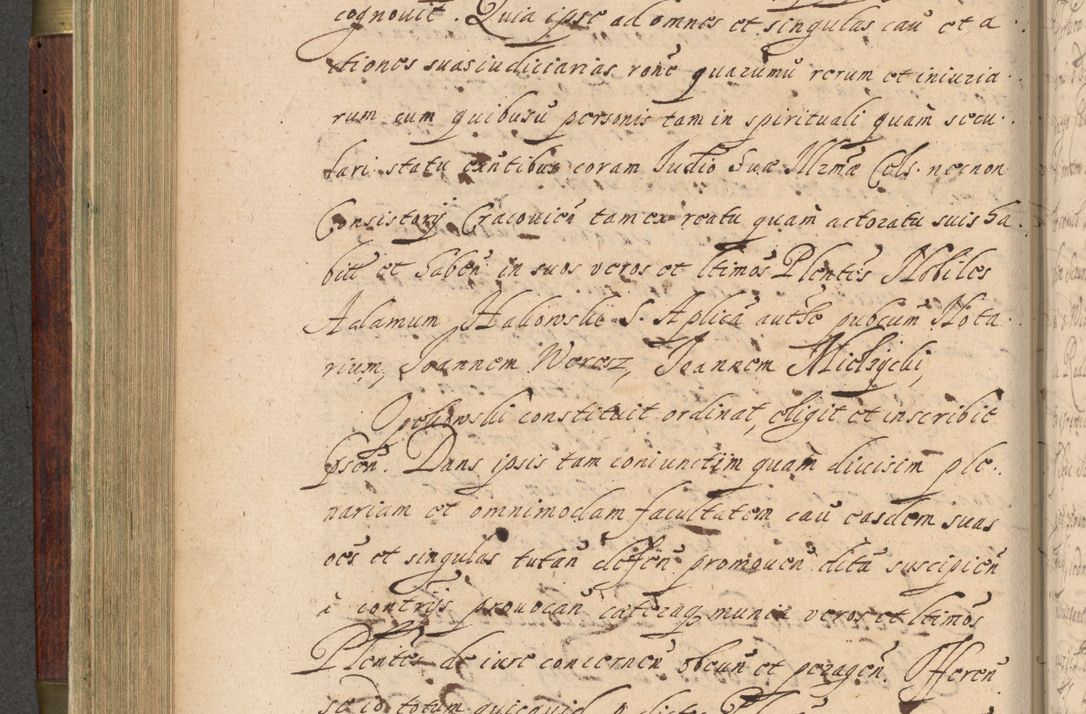 cognovit. Quia ipse ad omnes et singulas cau͠ et a
ctiones suas iudiciarias rōne quarumu͠ rerum et iniuria
rum cum quibusu͠ personis tam in spirituali quàm secu
lari statu exn͠tibus coram Judio Suæ Illr̄mæ Cels. necnon
Consistorij Cracovien͠ tam ex reatu quàm actoratu suis ha
bitt et haben͠ in suos veros et ltimos Plentes Nobiles
Adamum Haliowski S. Aplica͠ autħe pubcum Nota
rium, Joannem Wercz, Joannem
constituit ordinat, eligit et inscribit
Dans ipsis tam coniunctim quàm divisim ple
nariam et omnimodam facultatem cau͠ easdem suas
oēs et singulas tutan͠ deffen͠ promoven͠ dita͠ suscipien͠
è contrijs provocan͠ cæteraq munia veros et ltimos
Plentes de iure concernen͠ obeun͠ et peragen͠. Offeren͠
se id totum quicquid